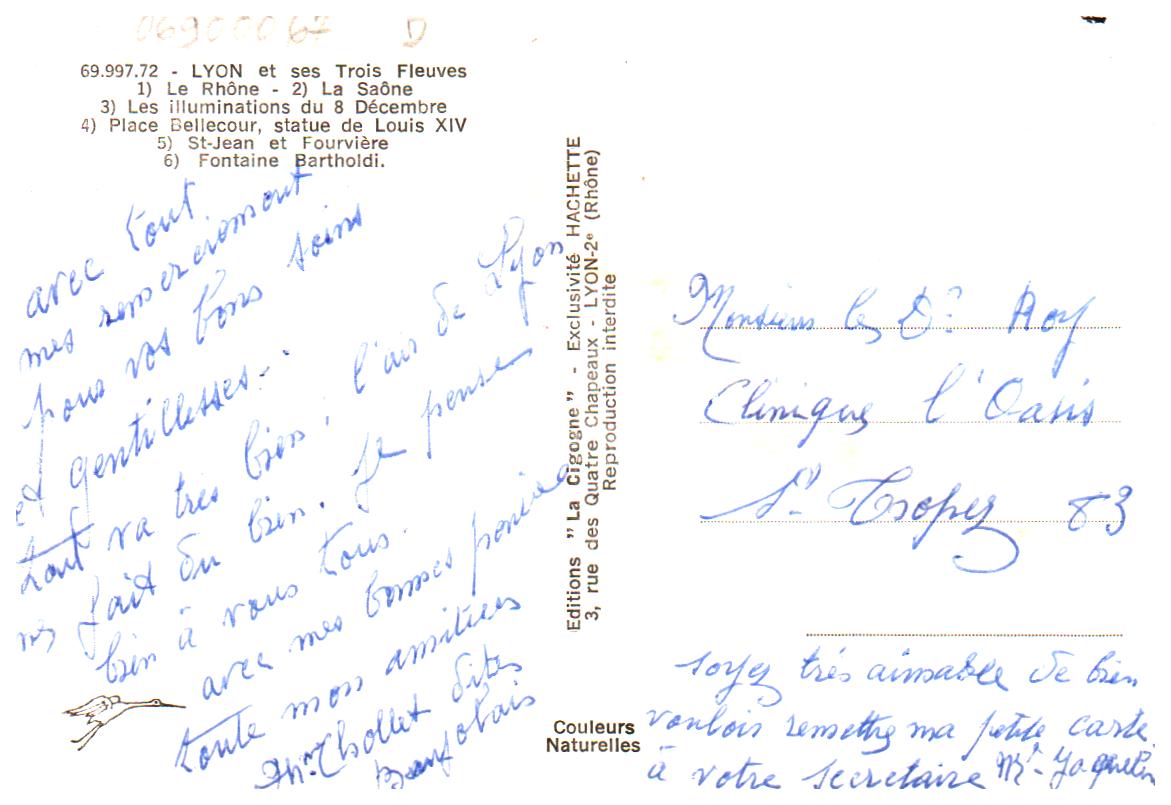 06900067 D
69.997.72 - LYON et ses Trois Fleuves
1) Le Rhône - 2) La Saône
3) Les illuminations du 8 Décembre
4) Place Bellecour, statue de Louis XIV
5) St-Jean et Fourvière
6) Fontaine Bartholdi.
avec tout
mes remerciement
pour vos bons soins
et gentillesses.-
tout va très bien, l'air de Lyon
me fait du bien. Je pense
bien à vous tous.
avec mes bonnes pensées
toute mon amitiees
Chollet dites
Beaujolais
Editions "La Cigogne" - Exclusivité HACHETTE
3, rue des Quatre Chapeaux - LYON-2e (Rhône)
Reproduction interdite
Couleurs
Naturelles
Monsieur le Dr Roy
Clinique l'Oasis
St. Tropez 83
soyez très aimable de bien
vouloir remettre ma petite carte
à votre secretaire